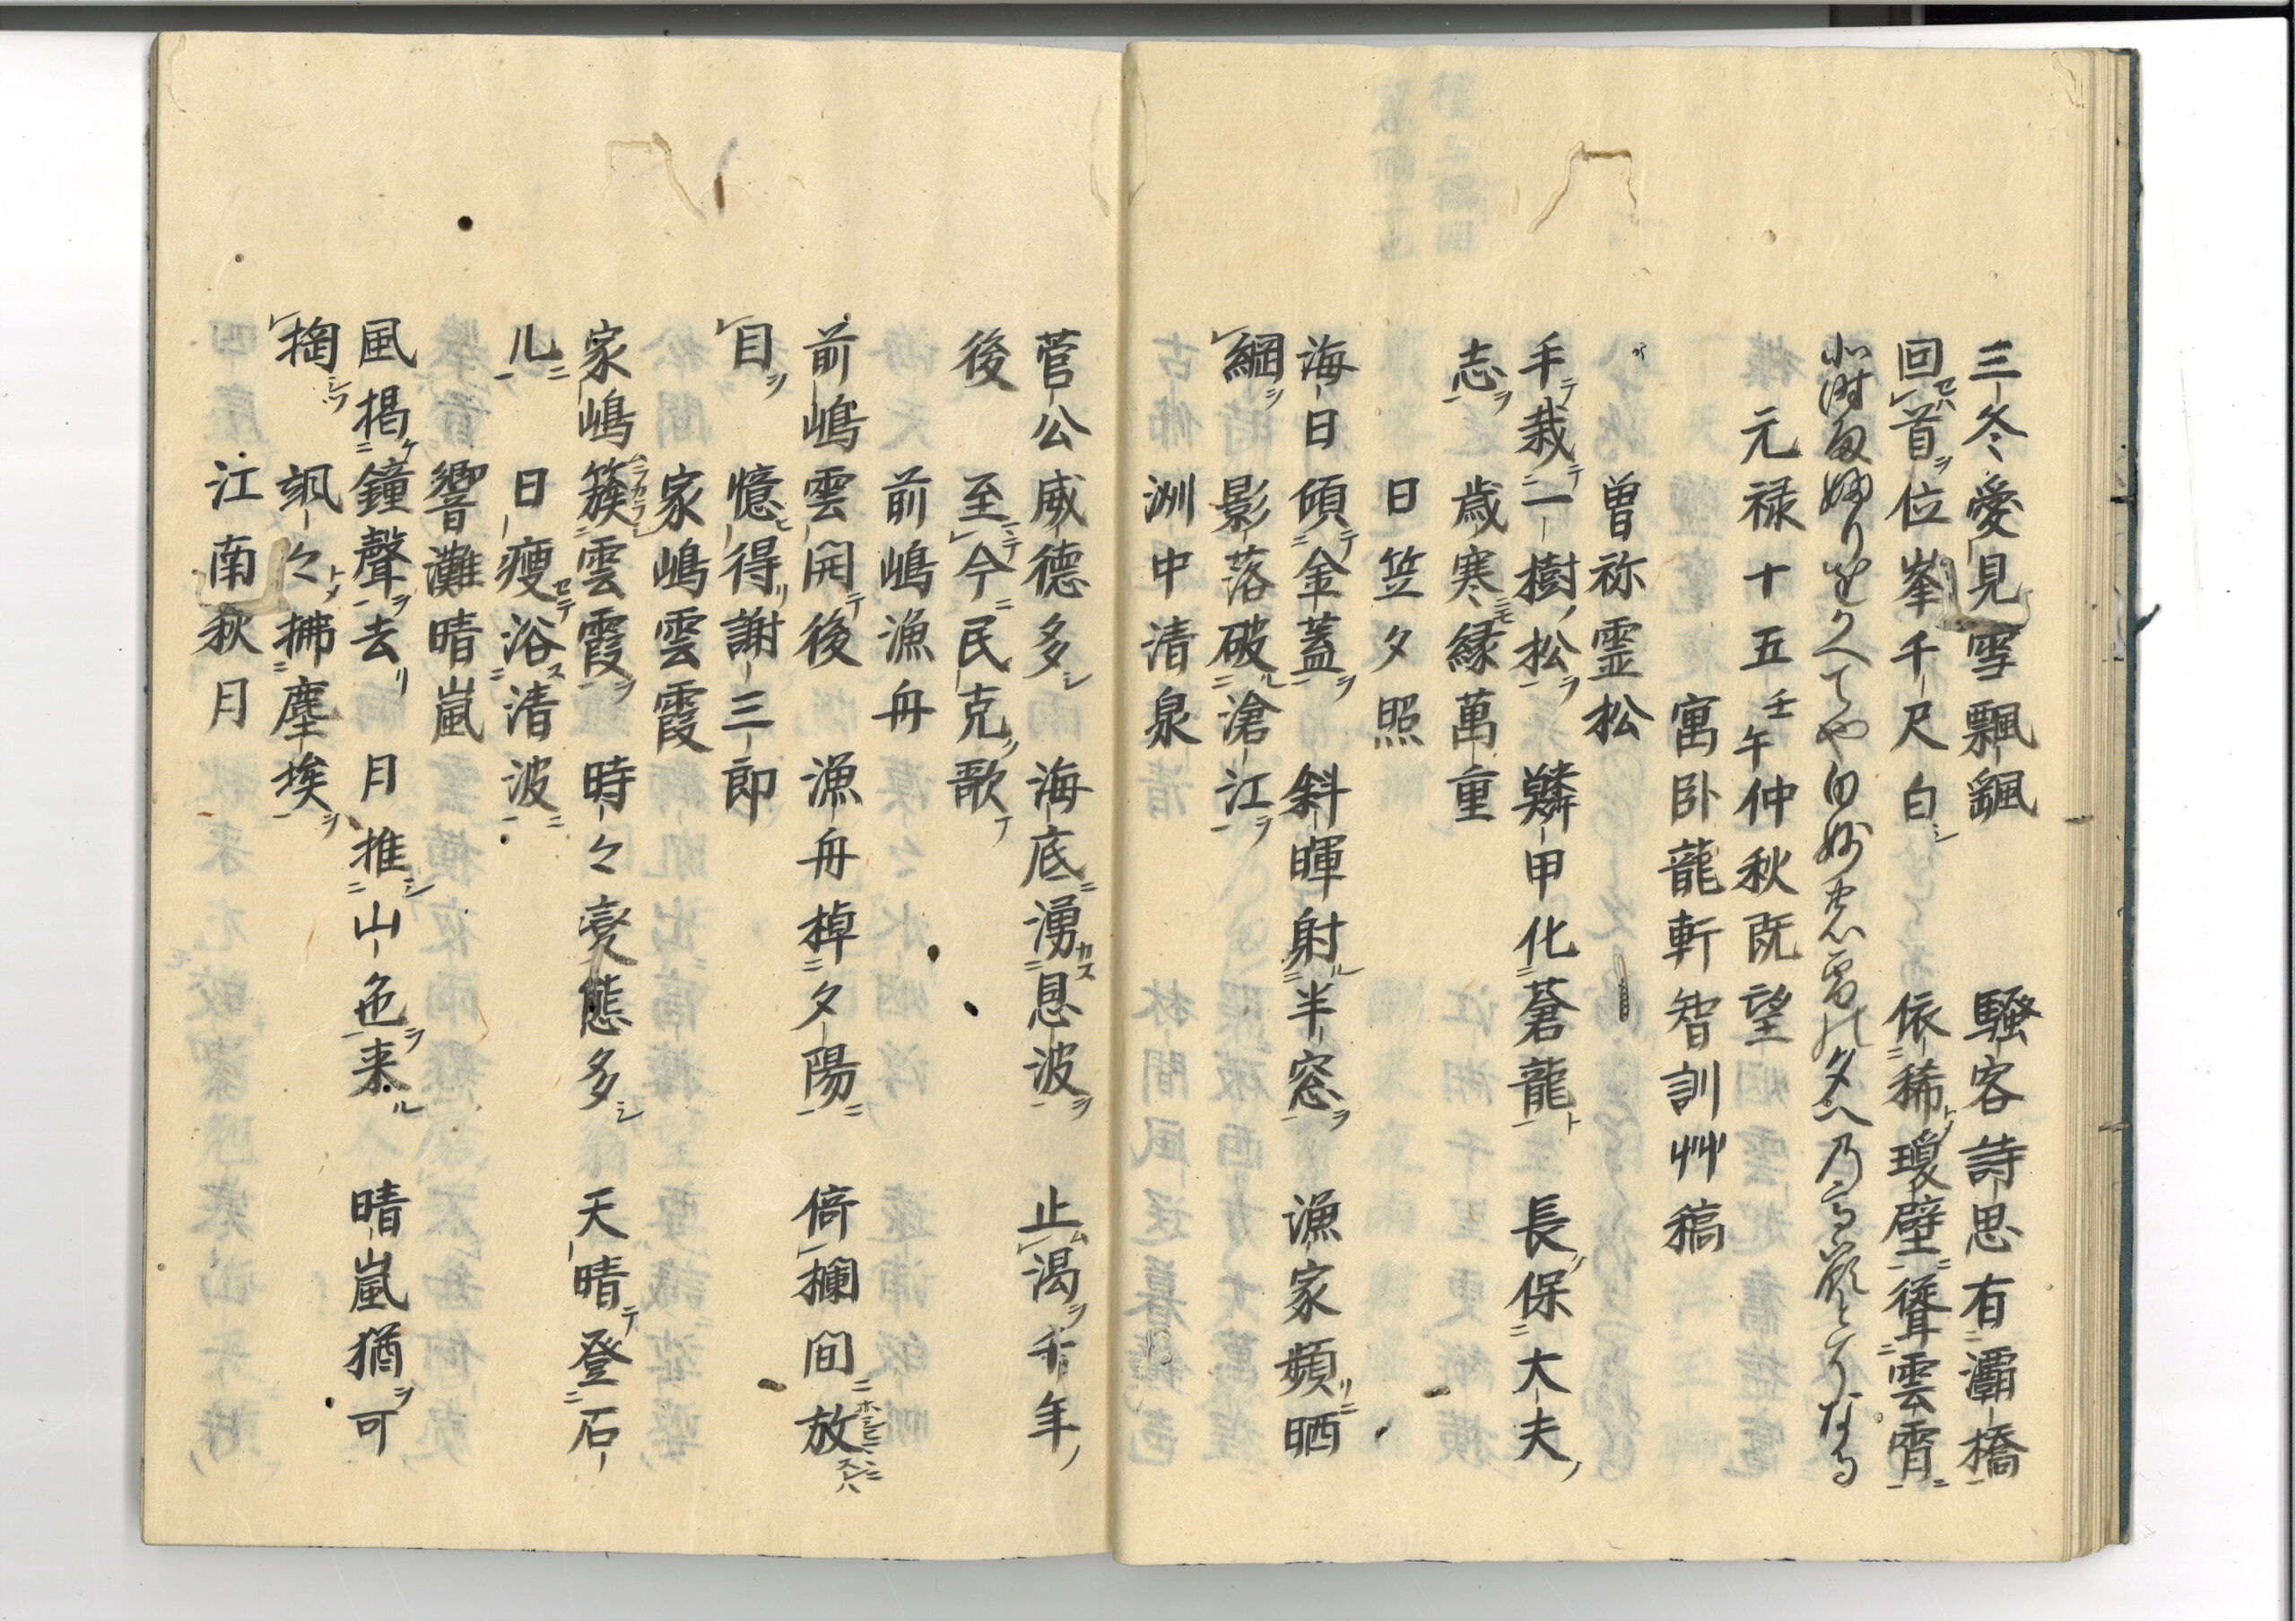 三冬愛見雪飄颻 騒客詩思有灞橋
回首位峯千尺白 依稀瓊壁聳雲霄
元禄十五壬午仲秋既望
寓卧龍軒智訓艸稿
曽祢霊松
手栽一樹松 鱗甲化蒼龍 長保大夫
志 歳寒緑萬重
日笠夕照
海日傾金蓋 斜暉射半窓 漁家頻晒
網 影落破滄江
洲中清泉
菅公威徳多 海底湧恩波 止渇千年
後 至今民克歌
前嶋漁舟
前嶋雲開後 漁舟棹夕陽 倚欄間放
目 憶得謝三郎
家嶋雲霞
家嶋簇雲霞 時々変態多 天晴登石
几 日瘦浴清波
響灘晴嵐
風掲鐘聲去 月推山色来 晴嵐猶可
掏 颯々拂塵埃
江南秋月